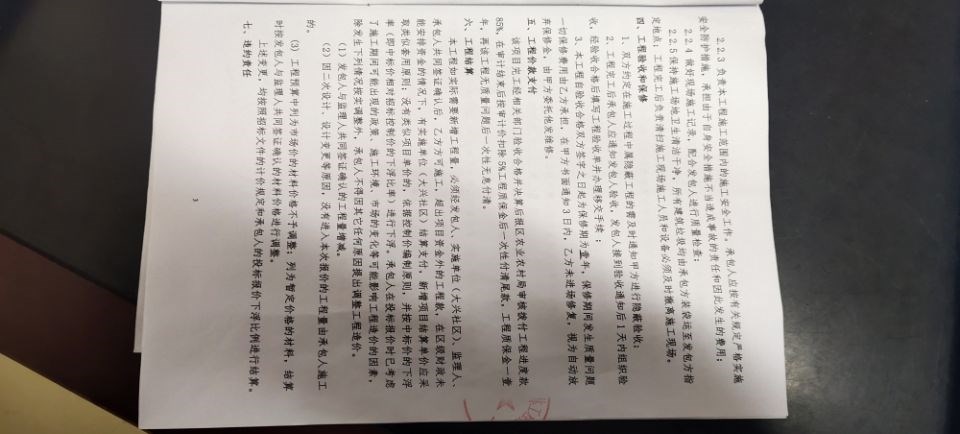 2.2.3 负责本工程施工范围内的施工安全工作。承包人应按有关规定严格实施
安全防护措施，承担由于自身安全措施不当造成事故的责任和因此发生的费用；
2.2.4 做好现场施工记录，配合发包人进行质量检查；
2.2.5 保持施工场地卫生清洁干净，所有建筑垃圾均由承包方装袋运至发包方指
定地点；工程完工后负责清扫施工现场施工人员和设备必须及时撤离施工现场。
四、工程验收和保修
1、双方约定在施工过程中属隐蔽工程的需及时通知甲方进行隐蔽验收；
2、工程完工后承包人应通知发包人验收，发包人接到验收通知后 1 天内组织验
收，经验收合格后填写工程验收单并办理移交手续；
3、本工程自验收合格双方签字之日起为保修期为壹年，保修期间发生质量问题
一切保修费用由乙方承担，在甲方书面通知 3 日内，乙方未进场修复，视为自动放
弃保修金，由甲方委托他发维修。
五、工程价款支付
该项目完工经相关部门验收合格并决算后报区农业农村局审核拨付工程进度款
85%，在审计结束后按审计价扣除 5%工程质保金后一次性付清尾款，工程质保金一壹
年，再该工程无质量问题后一次性无息付清。
六、工程结算
本工程如实际需要新增工程量，必须经发包人、实施单位（大兴社区）、监理人、
承包人共同签证确认后，乙方方可施工，超出项目资金外的工程款，在区级财政未
能安排资金的情况下，有实施单位（大兴社区）结算支付，新增项目结算单价应采
取类似套用原则；没有类似项目单价的，依据控制价编制原则，并按中标价的下浮
率（即中标价相对招标控制价的下浮比率）进行下浮。承包人在投标报价时已考虑
了施工期间可能出现的政策、施工环境、市场的变化等可能影响工程造价的因素，
除发生下列情况按实调整外，承包人不得因其它任何原因提出调整工程造价。
（1）发包人与监理人共同签证确认的工程量增减。
（2）因二次设计、设计变更等原因，没有进入本次报价的工程量由承包人施工
的。
（3）工程预算中列为市场价的材料价格不予调整；列为暂定价格的材料，结算
时按发包人与监理人共同签证确认的材料价格进行调整。
上述变更，均按照招标文件的计价约定和承包人的投标报价下浮比例进行结算。
七、违约责任
3